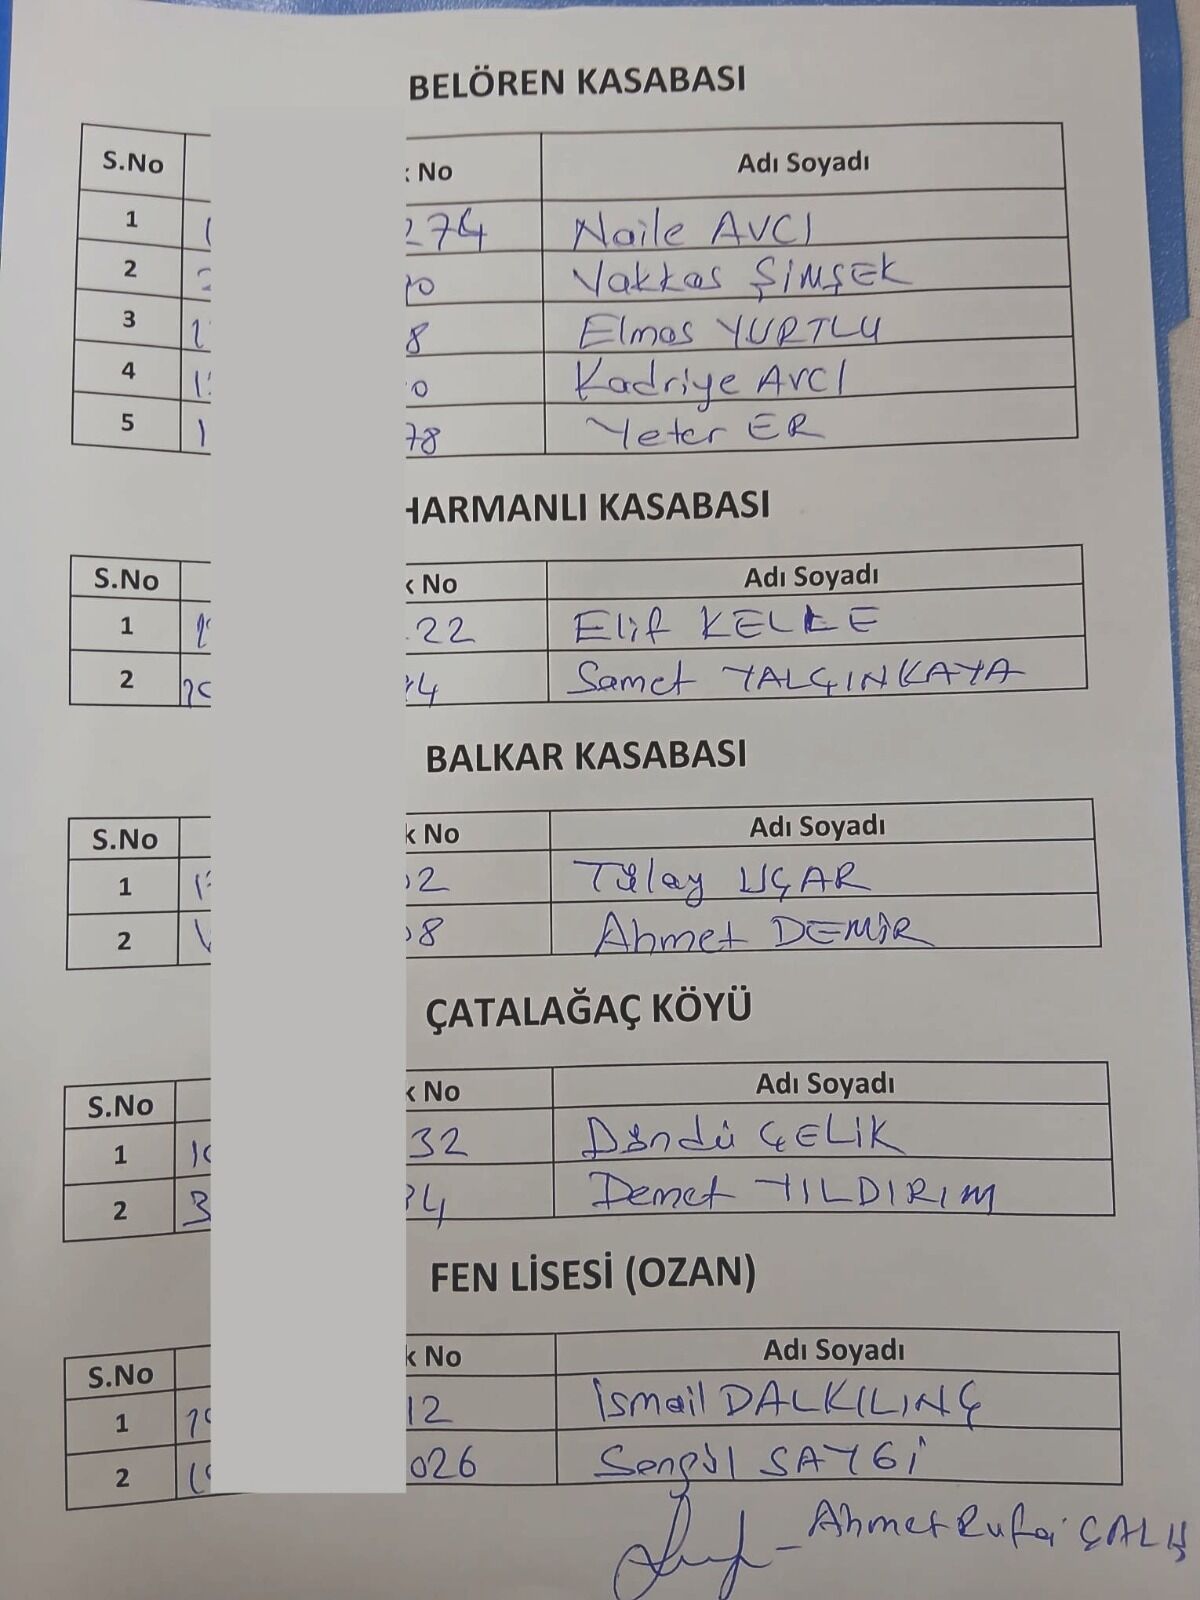 BELÖREN KASABASI
S.No No Adı Soyadı
1 274 Naile AVCI
2 Vakkas ŞİMŞEK
3 8 Elmas YURTLU
4 0 Kadriye AVCI
5 78 Yeter ER
HARMANLI KASABASI
S.No k No Adı Soyadı
1 22 Elif KELLE
2 4 Samet YALÇINKAYA
BALKAR KASABASI
S.No k No Adı Soyadı
1 2 Tülay UÇAR
2 8 Ahmet DEMİR
ÇATALAĞAÇ KÖYÜ
S.No k No Adı Soyadı
1 32 Döndü ÇELİK
2 4 Demet YILDIRIM
FEN LİSESİ (OZAN)
S.No k No Adı Soyadı
1 12 İsmail DALKILINÇ
2 026 Songül SAYGİ
Ahmet Rufai ÇALIŞ